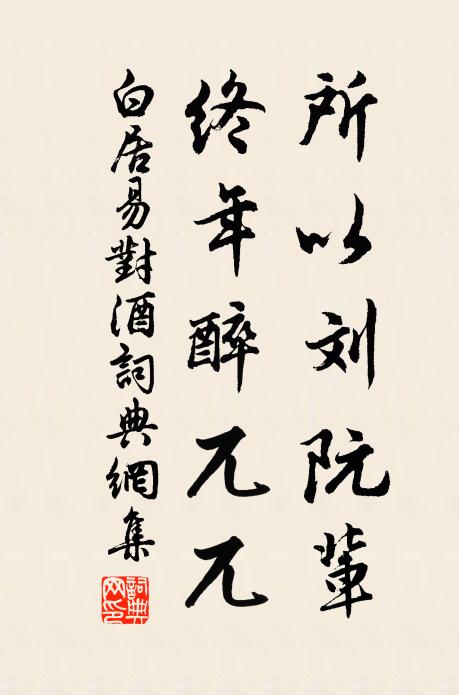 所以刘阮輩
終年醉兀兀
白居易對酒詞典網集
詞典
网印